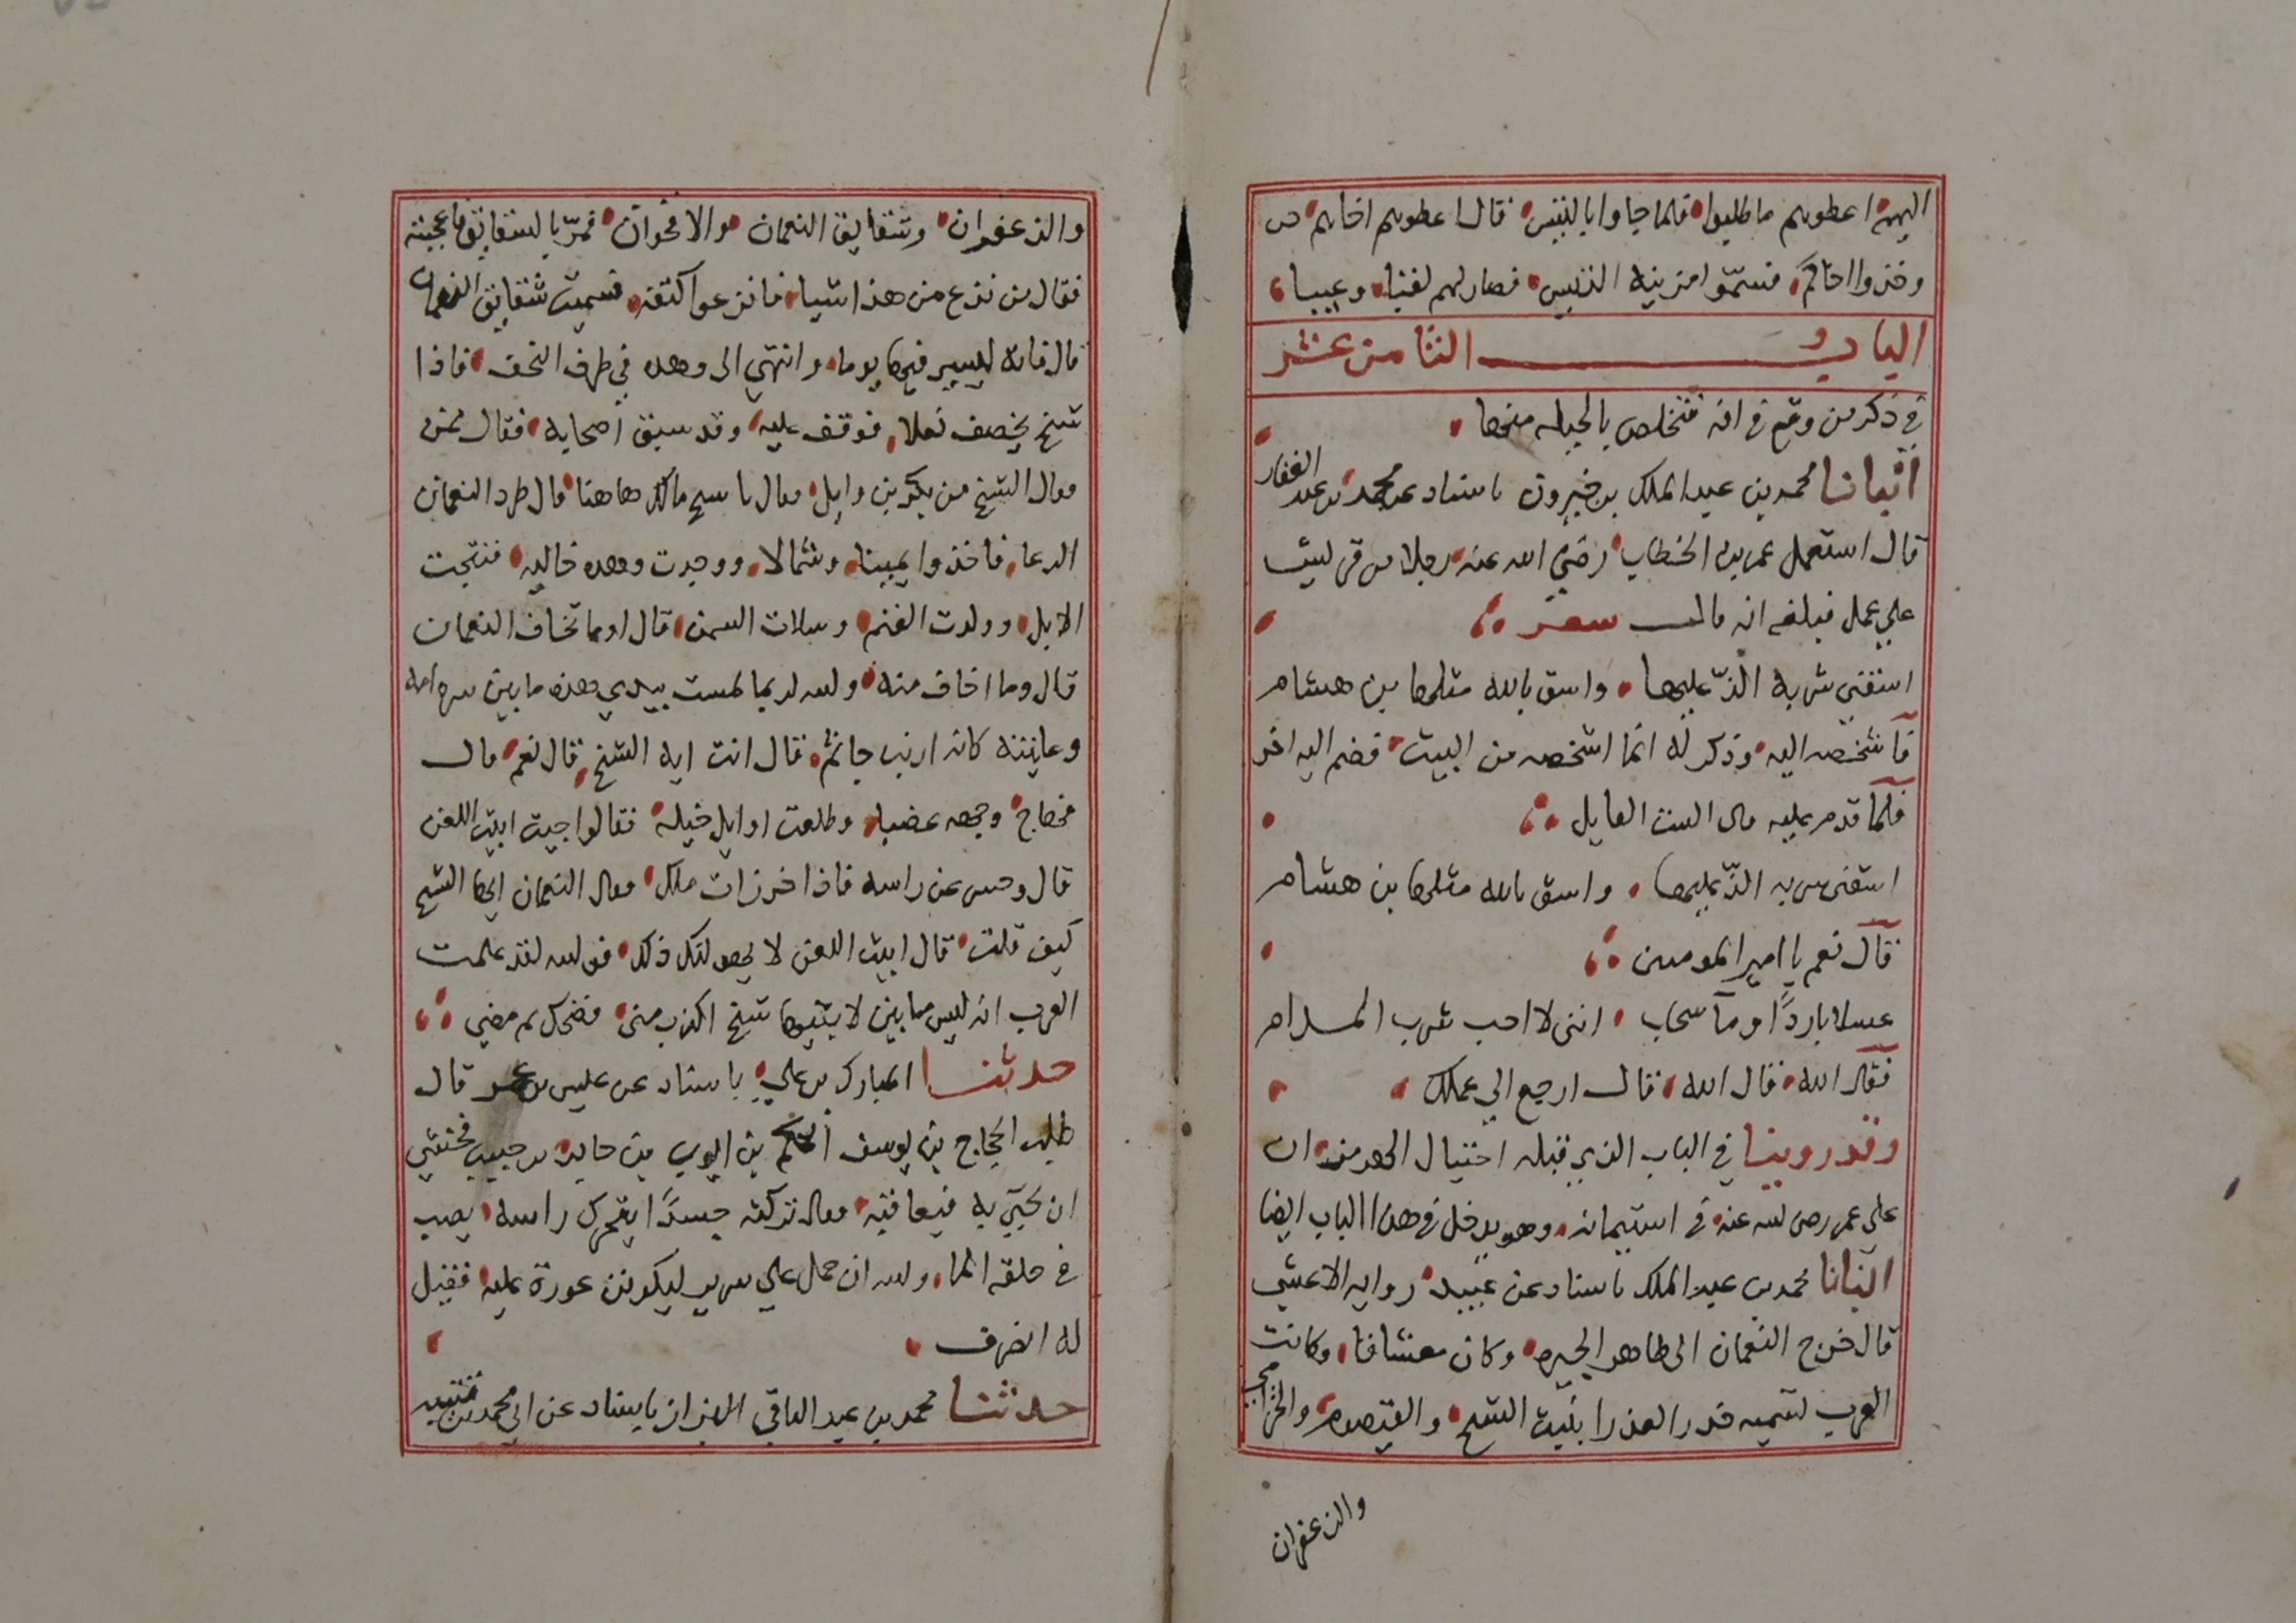 اليهم اعطوهم ما طلبوا فلما جاوا بالتيس قال اعطوهم اخاهم
وخذوا اخاكم فسمّوا مزينة التيس فصار لهم لقبا وعيبا
الباب الثامن عشر
في ذكر من وقع في افة فتخلص بالحيله منها
انبانا محمد بن عبد الملك بن خيرون باسناد عن محمد بن عبد الغفار
قال استعمل عمر بن الخطاب رضي الله عنه رجلا من قريش
علي عمل فبلغه انه قال شعر
اسقني شربه الذّ عليها واسق بالله مثلها بن هشام
فاشخصه اليه وذكر له انما اشخصه من البيت فضم اليه اخر
فلمّا قدم عليه قال الست القايل
اسقني شربه الذّ عليها واسق بالله مثلها بن هشام
قال نعم يا امير المومنين
عسلا باردًا وماء سحاب انني لا احب شرب المدام
فقال الله قال الله قال ارجع الي عملك
وقد روينا في الباب الذي قبله احتيال الهرمزان
على عمر رضي الله عنه في استيمانه وهو يدخل في هذا الباب ايضا
انبانا محمد بن عبد الملك باسناد عن عبيد روايه الاعشي
قال خرج النعمان الى ظاهر الحيره وكان معشابا وكانت
العرب تسميه خد العذرا بنبت الشيح والقيصوم والخزامي
والزعفران
والزعفران وشقايق النعمان والاقحوان فمرّ بالشقايق فاعجبته
فقال من نزع من هذا شيا فانزعوا كتفه فسميت شقايق النعمان
قال فانه ليسير فيها يوما وانتهي الى وهده في طرف النجف فاذا
شيخ يخصف نعلا فوقف عليه وقد سبق اصحابه فقال ممن
فقال الشيخ من بكر بن وايل فقال يا شيخ مالك هاهنا قال طرد النعمان
الرعا فاخذوا يمينا وشمالا ووجدت وهده خاليه فنتجت
الابل وولدت الغنم وسلات السمن قال اوما تخاف النعمان
قال وما اخاف منه والله لربما لمست بيدي هذه ما بين سره امه
وعانته كانه ارنب جاثم قال انت ايه الشيخ قال نعم قال
فهاج وجهه غضبا وطلعت اوايل خيله فقالوا حييت ابيت اللعن
قال وحسر عن راسه فاذا خرزات ملك فقال النعمان ايها الشيخ
كيف قلت قال ابيت اللعن لا يهولنك ذلك فوالله لقد علمت
العرب انه ليس ما بين لابتيها شيخ اكذب مني فضحك ثم مضي
حدثنا المبارك بن علي باسناد عن عليس بن عمر قال
طلب الحجاج بن يوسف الحكم بن ايوب بن حبيب فخشي
ان يجي به فيعاقبه فقال تركته جسدًا يتحرك راسه يصب
في حلقه الما والله ان حمل علي سرير ليكونن عورة عليه فقيل
له انصرف
حدثنا محمد بن عبد الباقي البزاز باسناد عن ابي محمد بن قتيبه